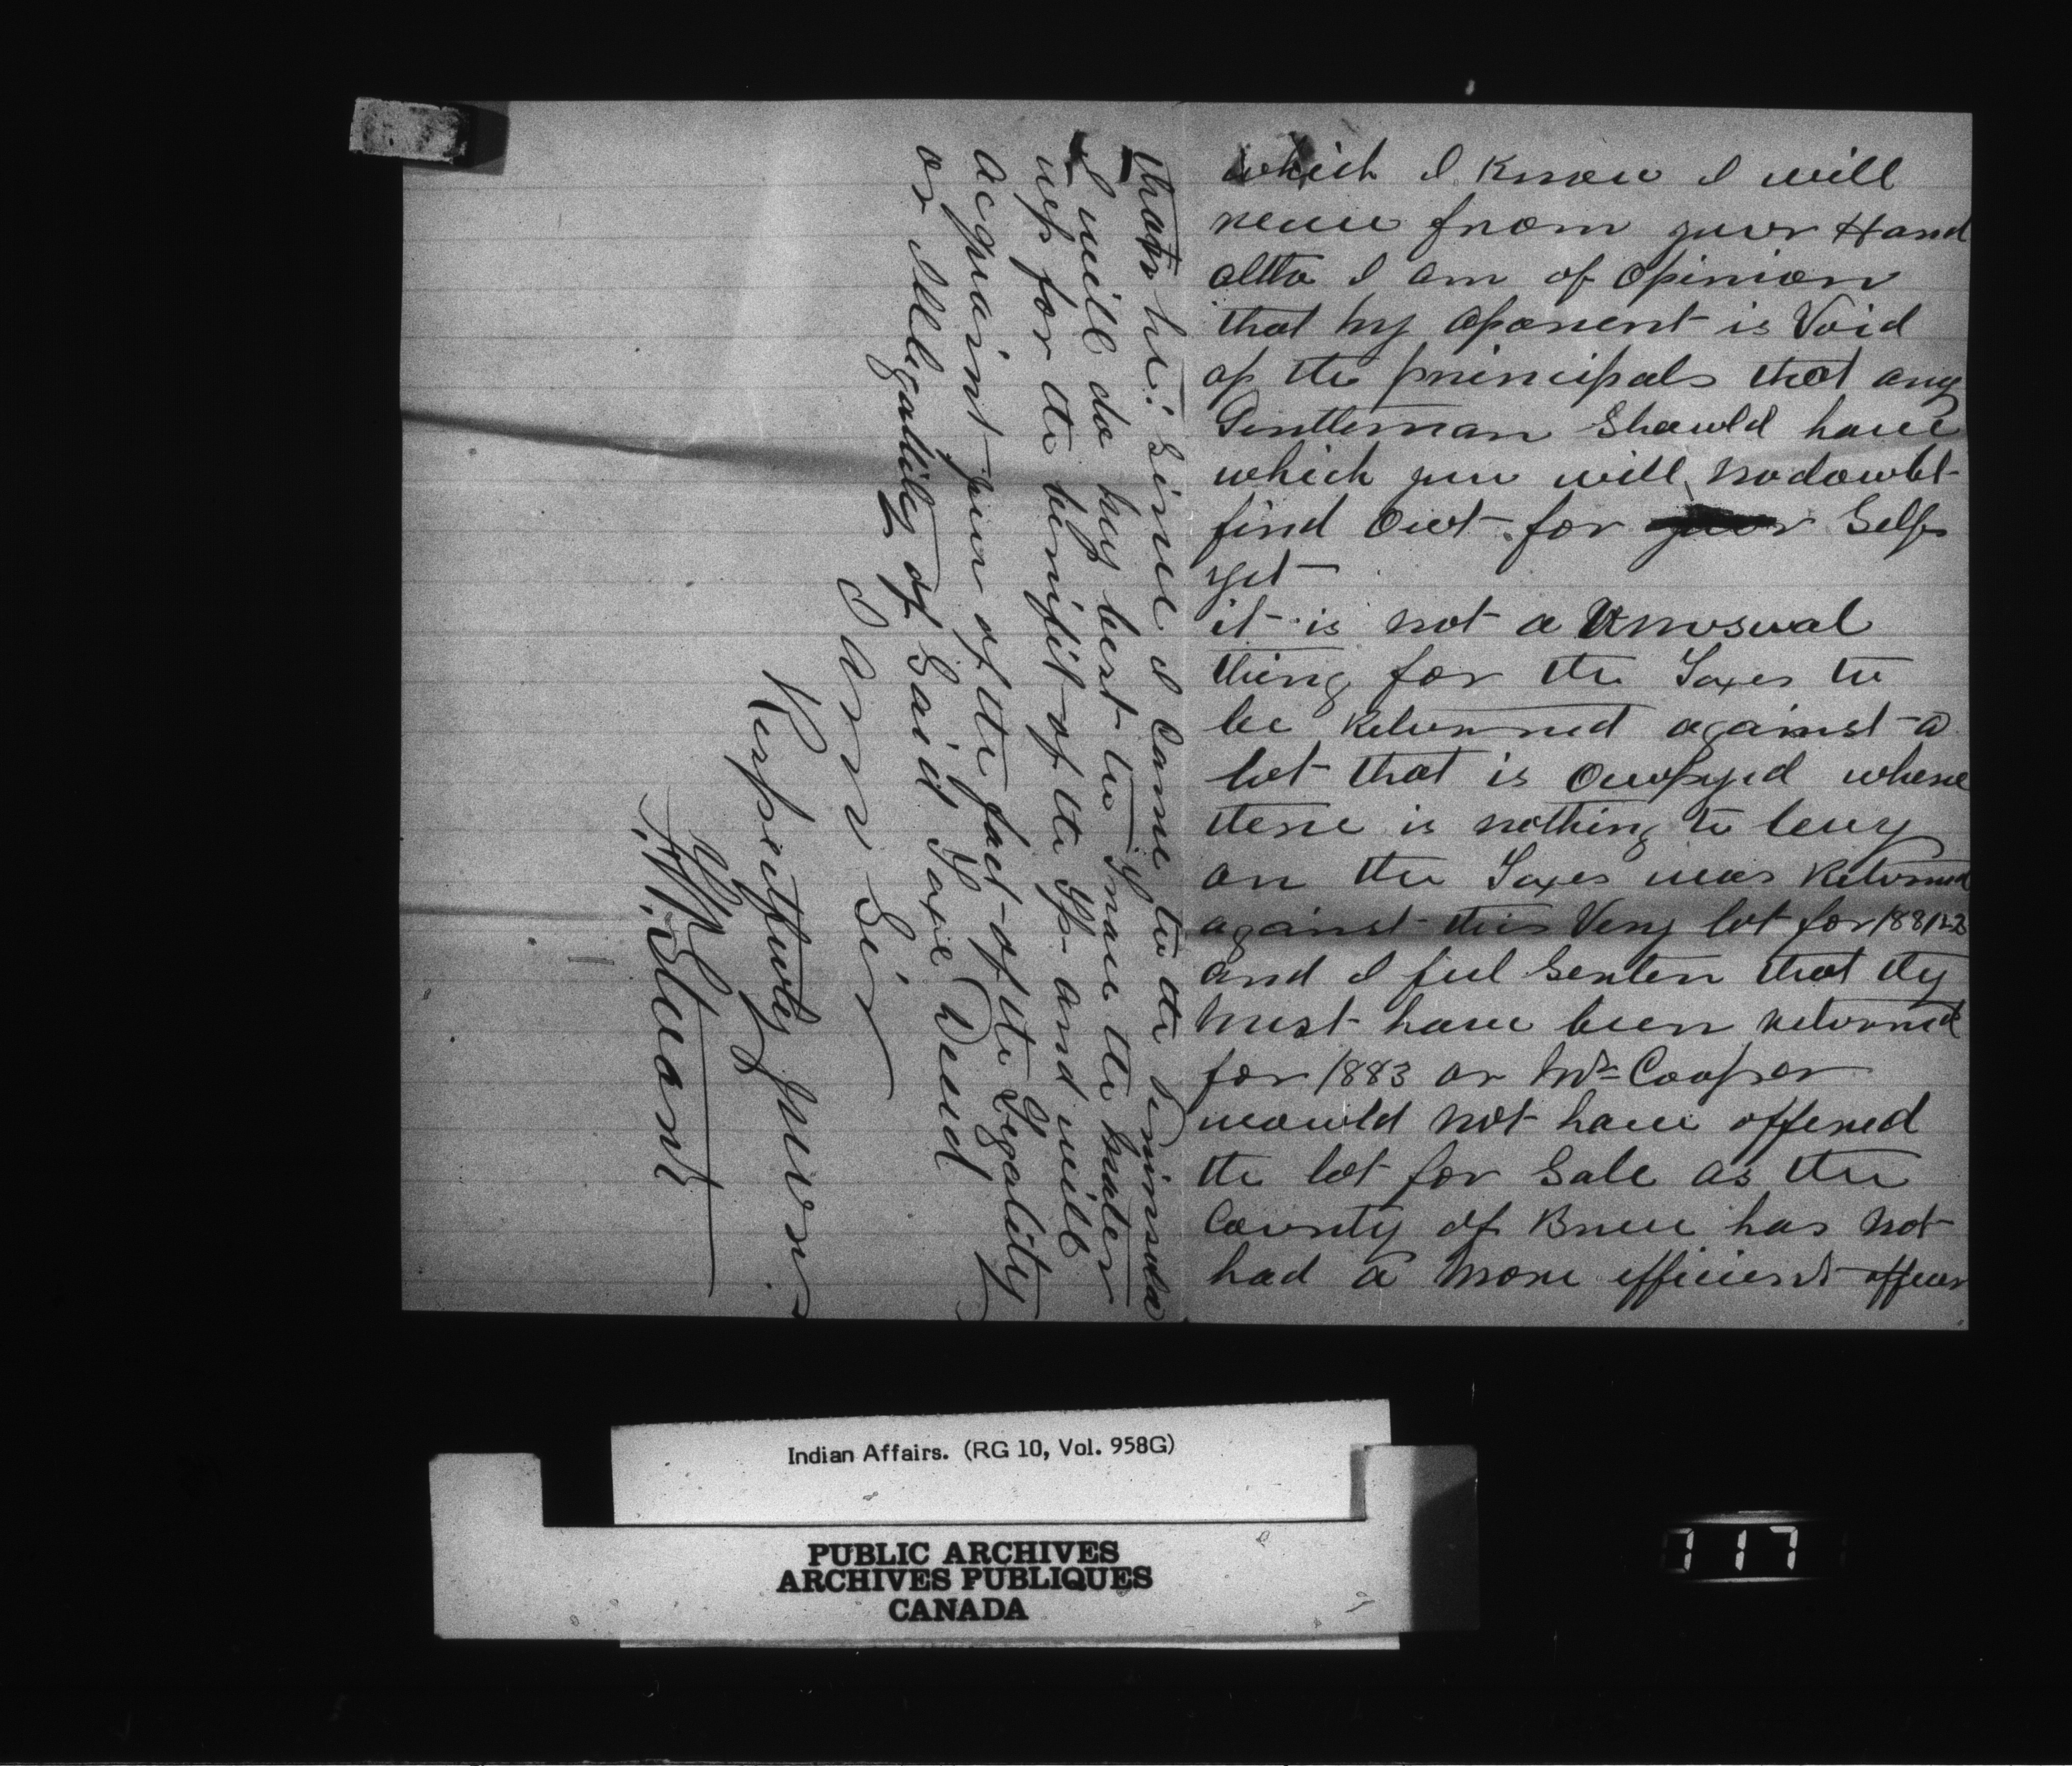 which I Know I will
receve from your Hand
altho I am of Opinion
that my Oponent is Void
of the principals that any
Gentleman Should have
which you will no dowbt
find Out for your Self
yet
it is not a Unusual
thing for the Taxes to
be Returned against a
lot that is Occupyed where
there is nothing to levy
on the Taxes was Returned
against this Very lot for 1881 & 2
and I feel Serten that they
must have been returned
for 1883 or Mr Cooper
would not have offered
the lot for Sale as the
County of Bruce has not
had a more efficient officer
than he Since I Came to the Peninsula
I will do my best to have the mater
up for the benifit of the Tp and will
Acquaint you of the fact of the Legality
or Illegality of Said Taxe Deed
I am Sir
Respectfully yours
W. Stuart
Indian Affairs. (RG 10, Vol. 958G)
PUBLIC ARCHIVES
ARCHIVES PUBLIQUES
CANADA
717